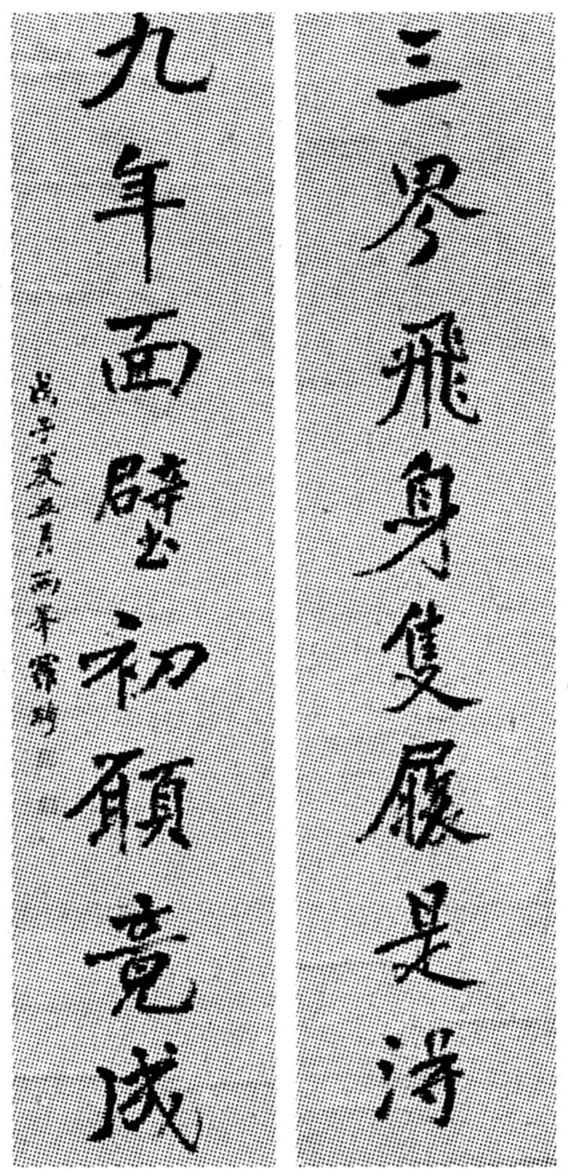 三界飛身隻履是得
九年面壁初願竟成
戊子夏五月兩峯羅聘